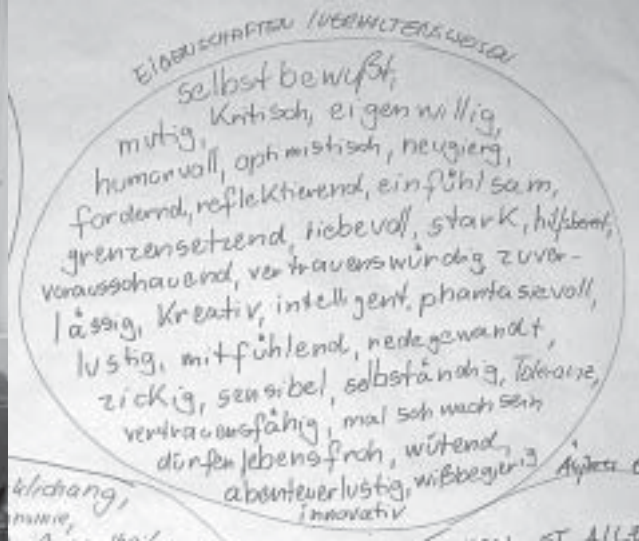 EIGENSCHAFTEN / VERHALTENSWEISEN
selbstbewußt,
Kritisch, eigenwillig,
mutig,
humorvoll, optimistisch, neugierg,
fordernd, reflektierend, einfühlsam,
grenzensetzend, liebevoll, stark, hilfsbereit,
vorausschauend, vertrauenswürdig zuver-
lässig, Kreativ, intelligent, phantasievoll,
lustig, mitfühlend, redegewandt,
zickig, sensibel, selbständig, Toleranz,
vertrauensfähig, mal schwach sein
dürfen lebensfroh, wütend,
abenteuerlustig, wißbegierig
innovativ